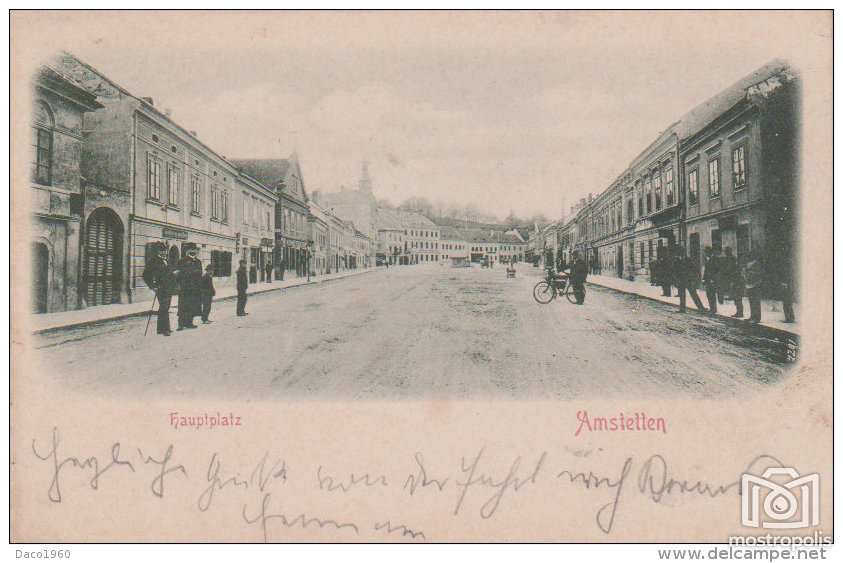 7291
Hauptplatz
Amstetten
Herzliche Grüße von der Fahrt nach
Hermann
mostropolis
Daco1960
http://www.delcampe.net